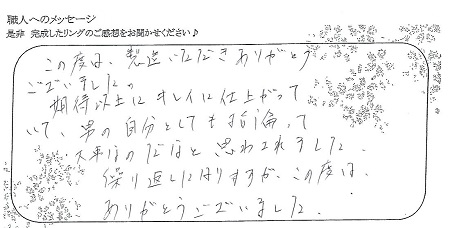 職人へのメッセージ
是非 完成したリングのご感想をお聞かせください♪
この度は、製造いただきありがとう
ございました。
期待以上にキレイに仕上がって
いて、男の自分としても指輪って
大事なのだなと思わされました。
繰り返しになりますが、この度は、
ありがとうございました。